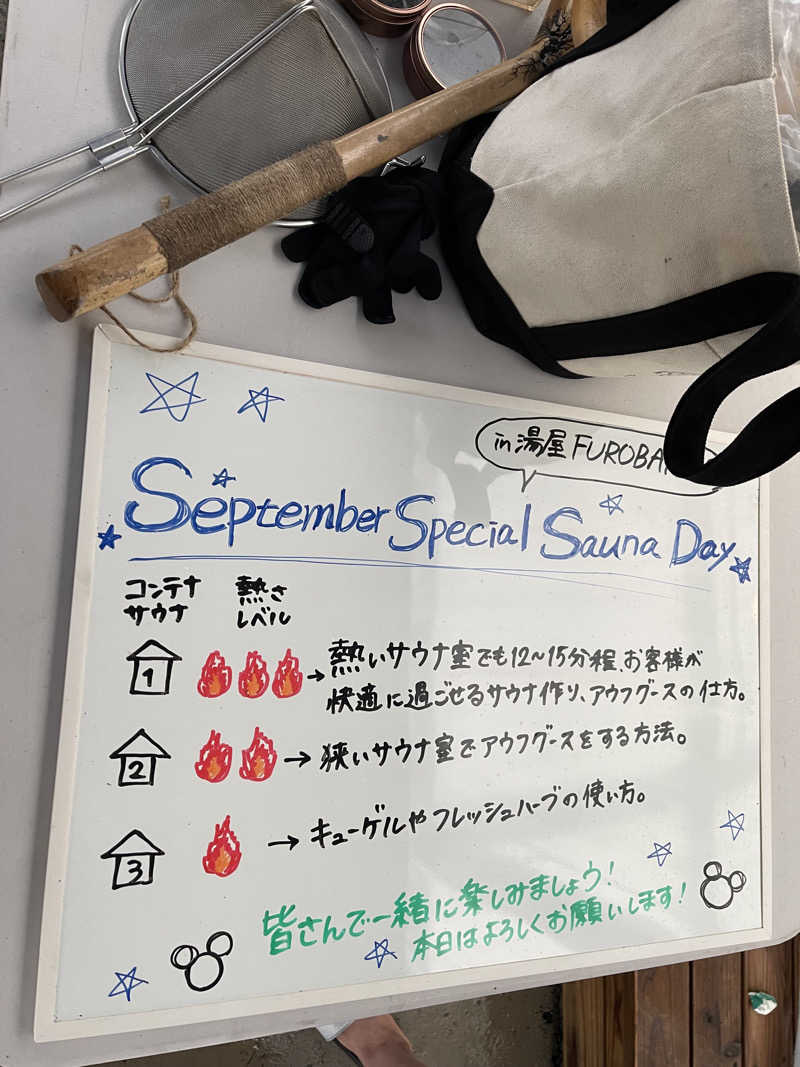 in 湯屋 FUROBA
September Special Sauna Day
コンテナ サウナ
熱さ レベル
1 → 熱いサウナ室でも12〜15分程、お客様が
快適に過ごせるサウナ作り、アウフグースの仕方。
2 → 狭いサウナ室でアウフグースをする方法。
3 → キューゲルやフレッシュハーブの使い方。
皆さんで一緒に楽しみましょう!
本日はよろしくお願いします!